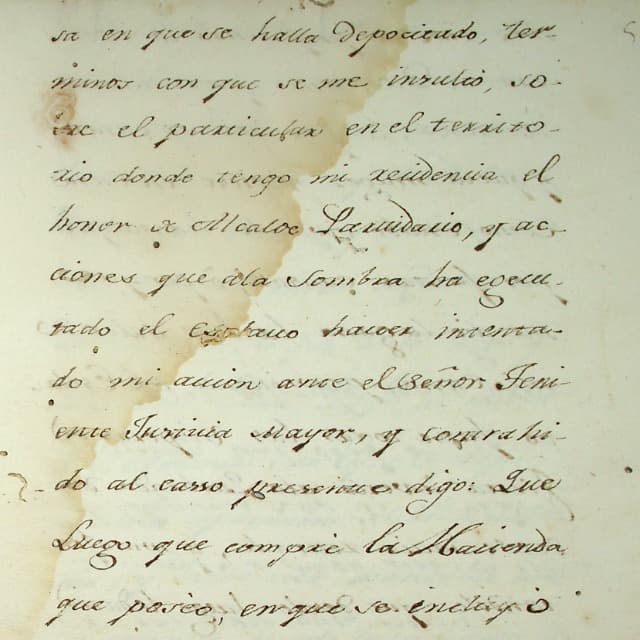 sa en que se halla Depocitado, ter-
minos con que se me insulió, so-
bre el particular en el territo-
rio donde tengo mi recidencia el
honor de Alcalde Partidario, y ac-
ciones que ala Sombra ha egecu-
tado el Esclavo haver intenta-
do mi accion ante el Señor Teni-
ente Justicia Mayor, y Contrahi-
do al casso presente digo: Que
Luego que compré la Hacienda
que poseo, en que se incluyó